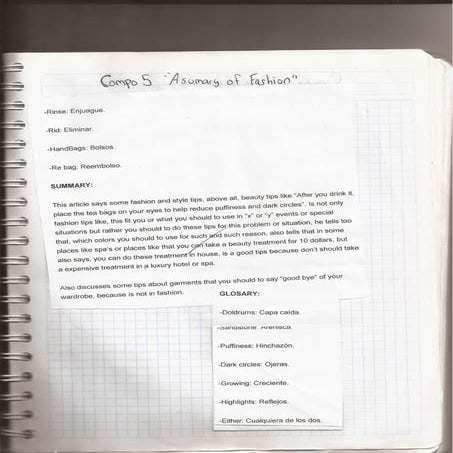 Compo 5 "A sumary of Fashion"
-Rinse: Enjuague.
-Rid: Eliminar.
-HandBags: Bolsos.
-Re bag: Reembolso.
SUMMARY:
This article says some fashion and style tips, above all, beauty tips like "After you drink it,
place the tea bags on your eyes to help reduce puffiness and dark circles". Is not only
fashion tips like, this fit you or what you should to use in "x" or "y" events or special
situations but rather you should to do these tips for this problem or situation, he tells too
that, which colors you should to use for such and such reason, also tells that in some
places like spa's or places like that you can take a beauty treatment for 10 dollars, but
also says, you can do these treatment in house, is a good tips because don't should take
a expensive treatment in a luxury hotel or spa.
Also discusses some tips about garments that you should to say "good bye" of your
wardrobe, because is not in fashion.
GLOSARY:
-Doldrums: Capa caída.
-Sandstone: Arenisca.
-Puffiness: Hinchazón.
-Dark circles: Ojeras.
-Growing: Creciente.
-Highlights: Reflejos.
-Either: Cualquiera de los dos.